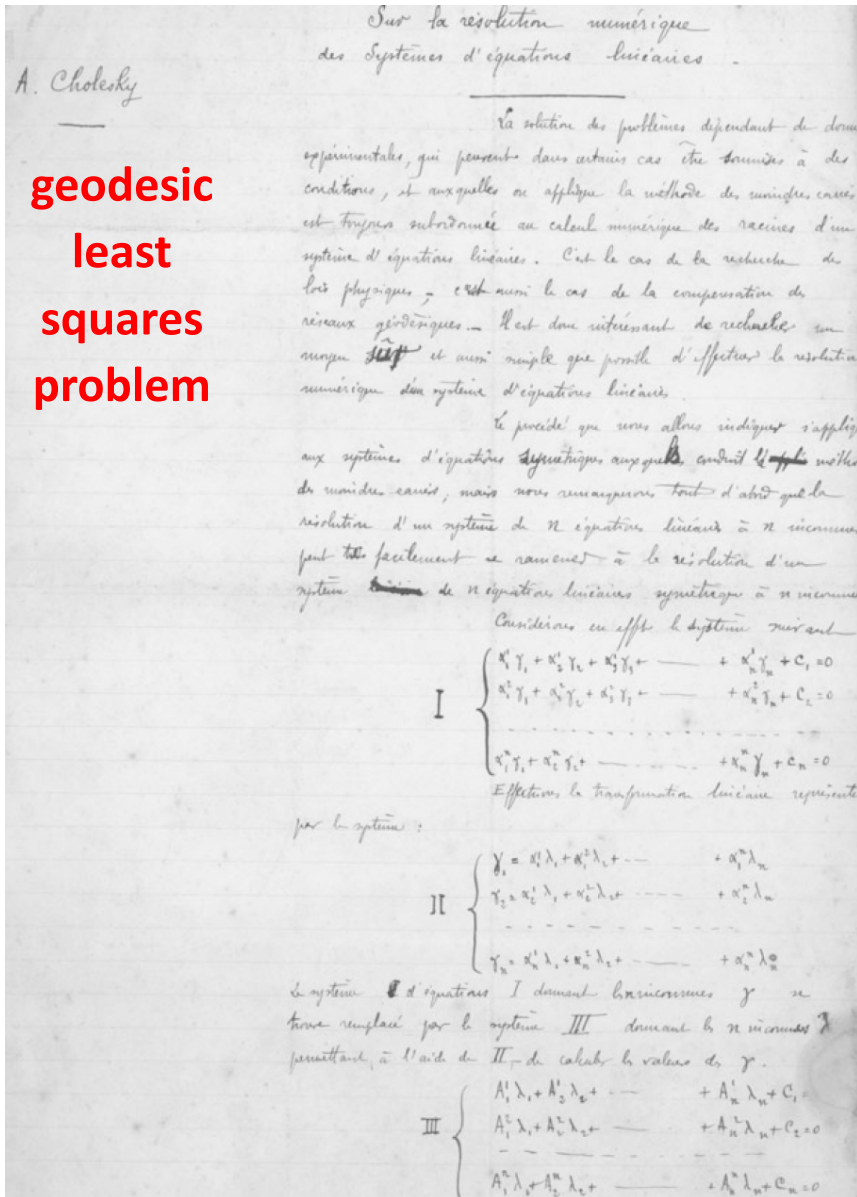 Sur la résolution numérique
des Systèmes d'équations linéaires.
A. Cholesky
geodesic
least
squares
problem
La solution des problèmes dépendant de donn
expérimentales, qui peuvent dans certains cas être soumises à des
conditions, et auxquelles on applique la méthode des moindres carrés
est toujours subordonnée au calcul numérique des racines d'un
système d'équations linéaires. C'est le cas de la recherche des
lois physiques, c'est aussi le cas de la compensation des
réseaux géodésiques. Il est donc intéressant de rechercher un
moyen sûr et aussi simple que possible d'effectuer la résolution
numérique d'un système d'équations linéaires.
Le procédé que nous allons indiquer s'appliq
aux systèmes d'équations symétriques auxquels conduit la métho
des moindres carrés, mais nous remarquerons tout d'abord que la
résolution d'un système de n équations linéaires à n inconnue
peut facilement se ramener à la résolution d'un
système de n équations linéaires symétrique à n inconnue
Considérons en effet le système suivant
I
α₁¹γ₁ + α₂¹γ₂ + α₃¹γ₃ + — + αₙ¹γₙ + C₁ = 0
α₁²γ₁ + α₂²γ₂ + α₃²γ₃ + — + αₙ²γₙ + C₂ = 0
α₁ⁿγ₁ + α₂ⁿγ₂ + — + αₙⁿγₙ + Cₙ = 0
Effectuons la transformation linéaire représenté
par le système :
II
γ₁ = α₁¹λ₁ + α₁²λ₂ + — + α₁ⁿλₙ
γ₂ = α₂¹λ₁ + α₂²λ₂ + — + α₂ⁿλₙ
γₙ = αₙ¹λ₁ + αₙ²λ₂ + — + αₙⁿλₙ
Le système d'équations I donnant les n inconnues γ se
trouve remplacé par le système III donnant les n inconnues λ
permettant, à l'aide de II, de calculer les valeurs des γ.
III
A₁¹λ₁ + A₂¹λ₂ + — + Aₙ¹λₙ + C₁ =
A₁²λ₁ + A₂²λ₂ + — + Aₙ²λₙ + C₂ = 0
A₁ⁿλ₁ + A₂ⁿλ₂ + — + Aₙⁿλₙ + Cₙ = 0